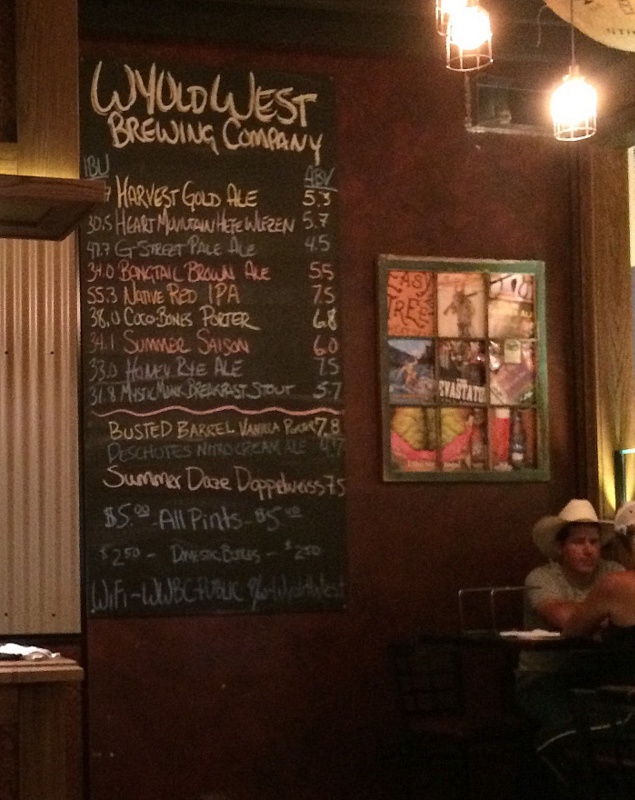 WYOLD WEST
BREWING COMPANY
IBU ABV
HARVEST GOLD ALE 5.3
30.5 HEART MOUNTAIN HEFE WIEZEN 5.7
47.7 G-STREET PALE ALE 4.5
34.0 BOBTAIL BROWN ALE 5.5
55.3 NATIVE RED IPA 7.5
38.0 COCO-BONES PORTER 6.8
34.1 SUMMER SAISON 6.0
33.0 HONEY RYE ALE 7.5
31.8 MYSTIC MONK BREAKFAST STOUT 5.7
BUSTED BARREL VANILLA PORTER 7.8
DESCHUTES NITRO CREAM ALE 4.7
Summer Daze Doppelweiss 7.5
$5.00 - All Pints - $5.00
$2.50 - DOMESTIC BOTTLES - $2.50
WiFi - WWBC-PUBLIC